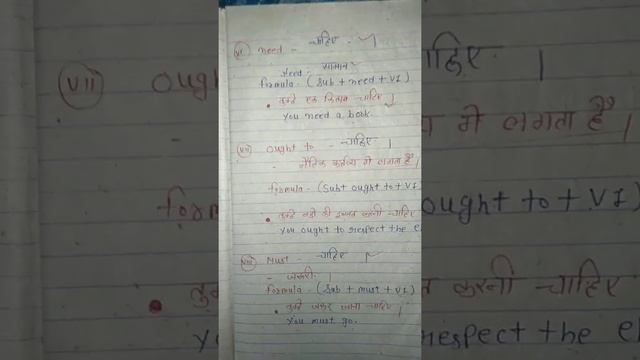 vi) need - चाहिए -
Need - सामान
formula - (Sub + need + V1)
• तुम्हे एक किताब चाहिए
You need a book.
vii) ought to - चाहिए ।
- नैतिक कर्तव्य मे लगता है ।
formula - (Sub + ought to + V1
• तुम्हे बडो की इज्जत करनी चाहिए
You ought to respect the el
viii) Must - चाहिए ।
- जरूरी ।
formula - (Sub + must + V1)
• तुम्हे जरूर जाना चाहिए ।
You must go.
vii ough
form
•
y
ाहिए ।
मे लगता है ।
ought to + V1
करनी चाहिए
respect the el